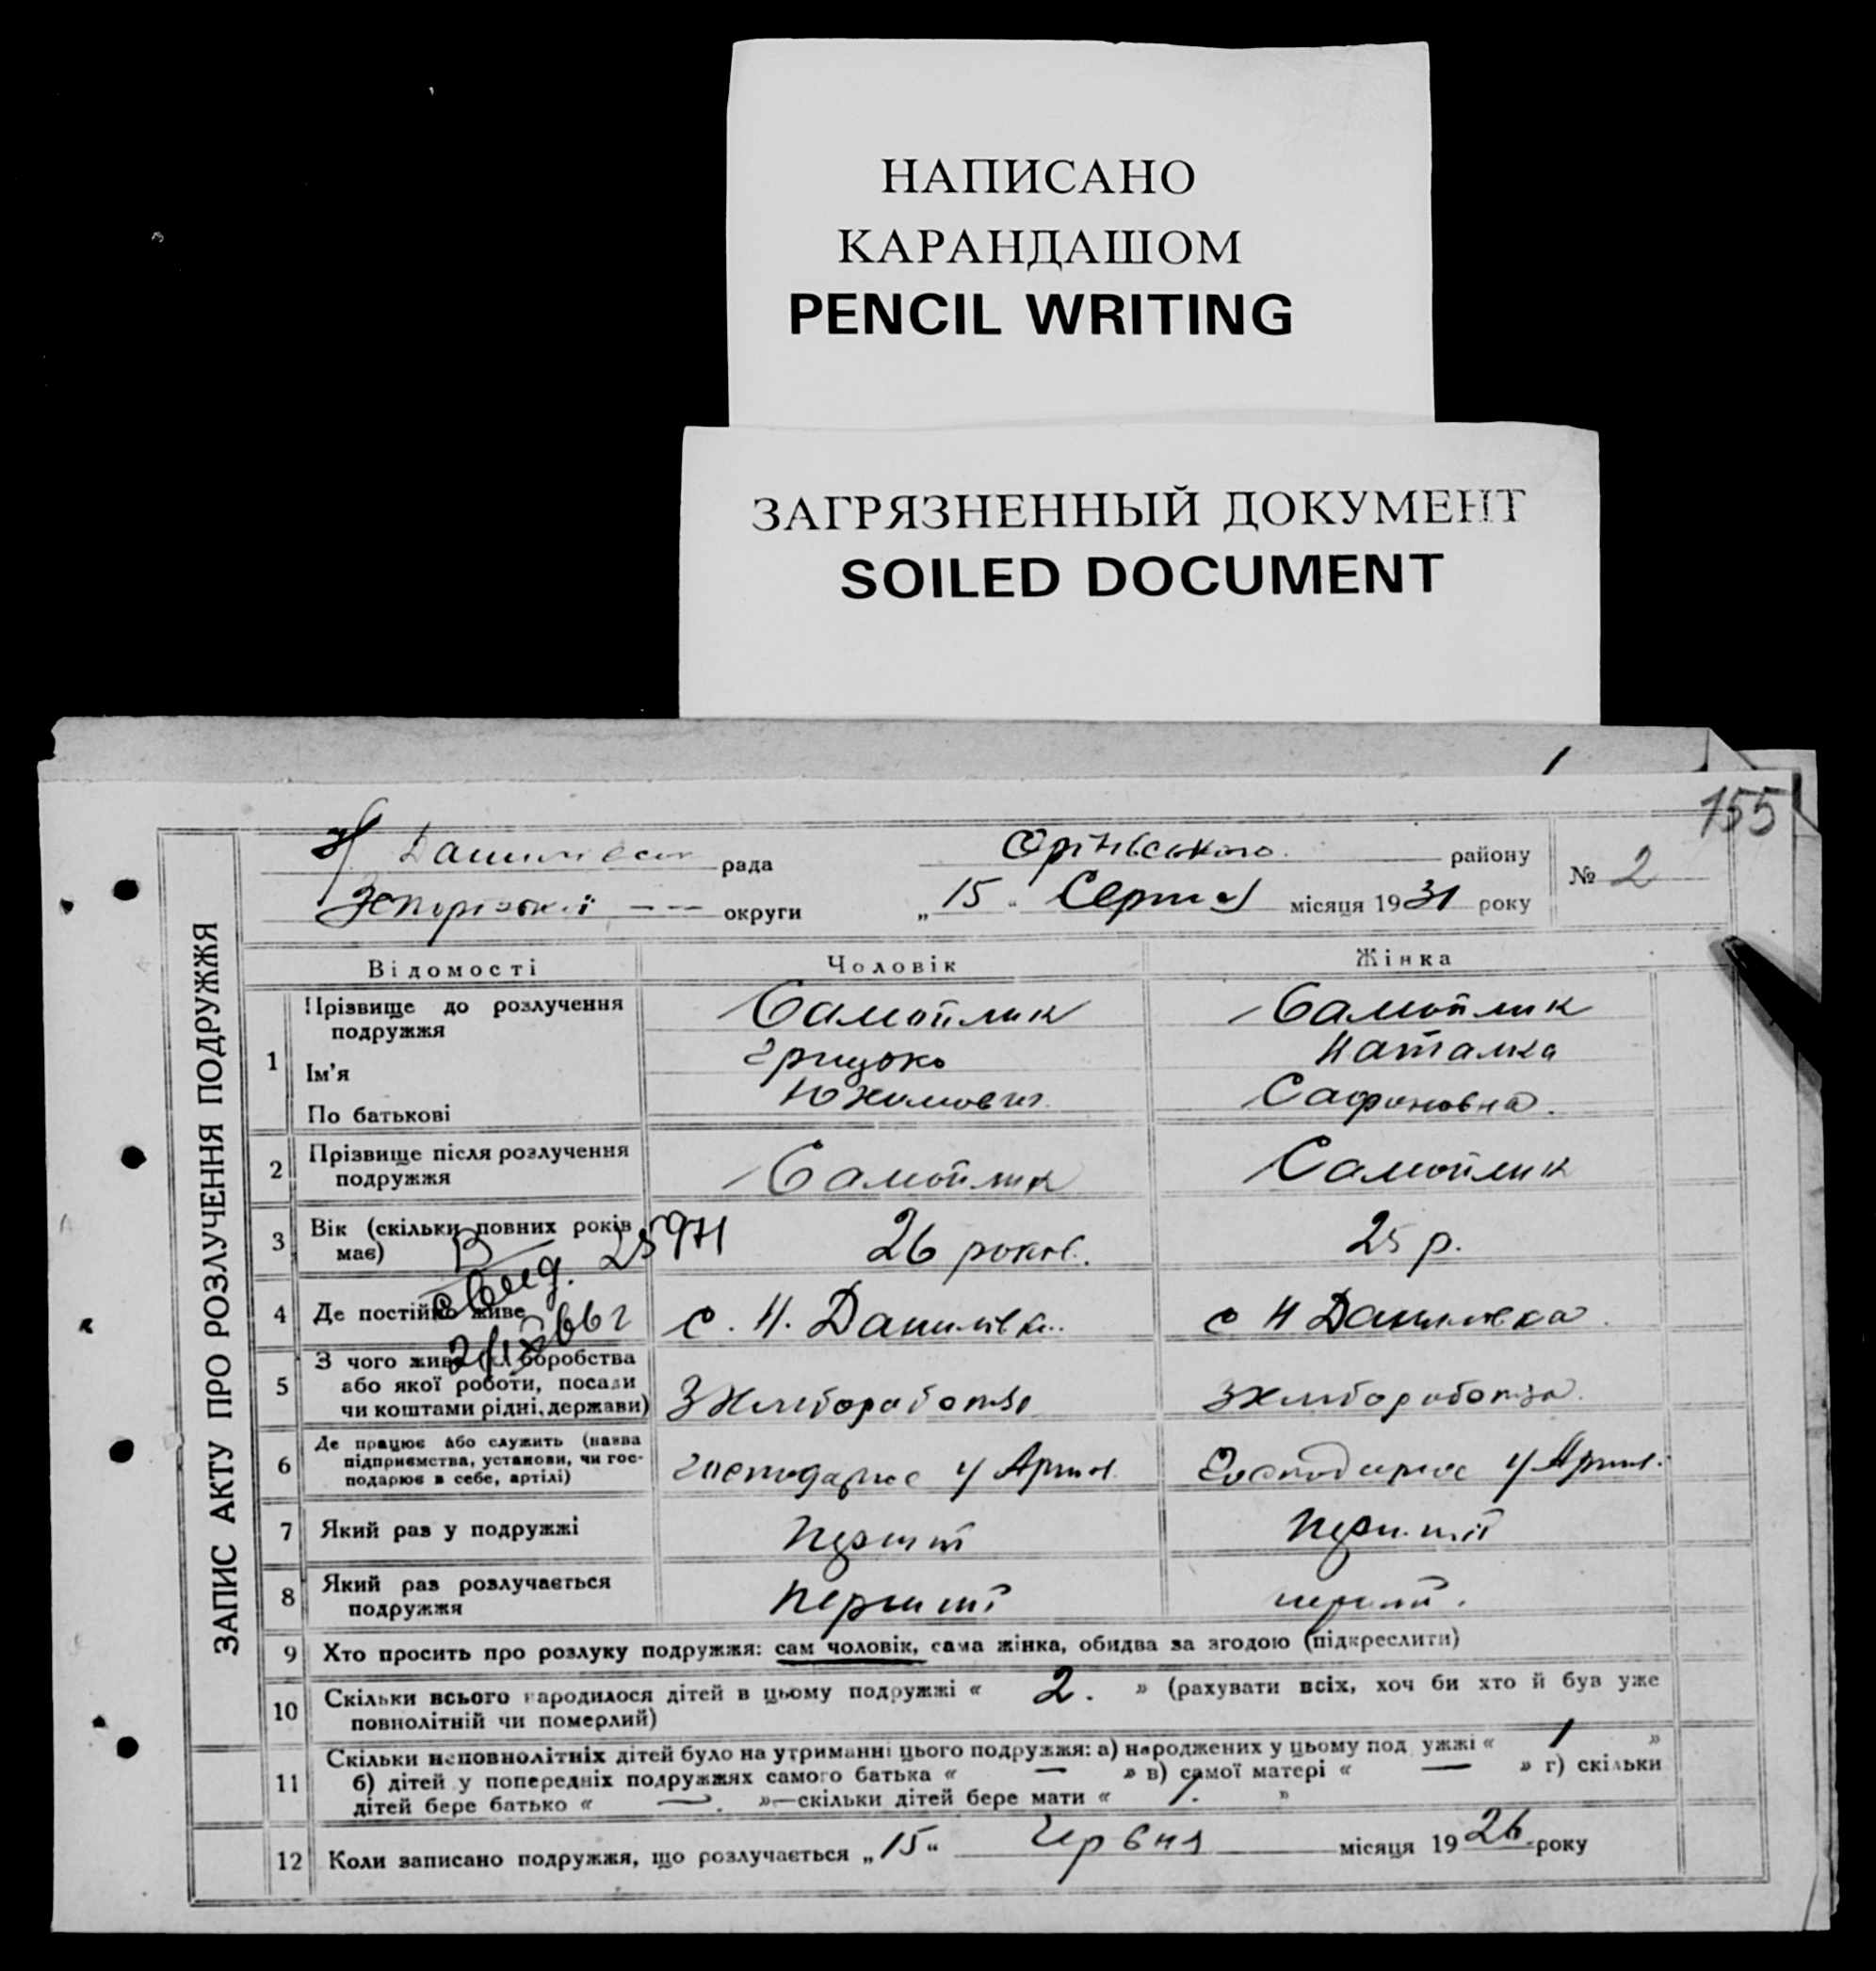 НАПИСАНО
КАРАНДАШОМ
PENCIL WRITING
ЗАГРЯЗНЕННЫЙ ДОКУМЕНТ
SOILED DOCUMENT
155
ЗАПИС АКТУ ПРО РОЗЛУЧЕННЯ ПОДРУЖЖЯ
рада Орінвського району
№ 2
округи „15“ Серпня місяця 1931 року
Відомості Чоловік Жінка
1 Прізвище до розлучення подружжя Самойлик Самойлик
Ім'я Грицько Наталка
По батькові Юхимович Сафоновна.
2 Прізвище після розлучення подружжя Самойлик Самойлик
3 Вік (скільки повних років має) 26 років. 25 р.
25971
4 Де постійно живе с. Н. Данилівка. с Н Данилівка.
5 З чого живе (хлiборобства або якої роботи, посади чи коштами рідні, держави)
6 Де працює або служить (назва підприємства, установи, чи господарює в себе, артілі) господарює у Артілі. Господарює у Артілі.
7 Який раз у подружжі перший перший
8 Який раз розлучається подружжя перший перший.
9 Хто просить про розлуку подружжя: сам чоловік, сама жінка, обидва за згодою (підкреслити)
10 Скільки всього народилося дітей в цьому подружжі « 2. » (рахувати всіх, хоч би хто й був уже
повнолітній чи померлий)
11 Скільки неповнолітніх дітей було на утриманні цього подружжя: а) народжених у цьому подружжі « 1 »
б) дітей у попередніх подружжях самого батька « — » в) самої матері « — » г) скільки
дітей бере батько « — » —скільки дітей бере мати « 1. »
12 Коли записано подружжя, що розлучається „15“ Червня місяця 1926 року